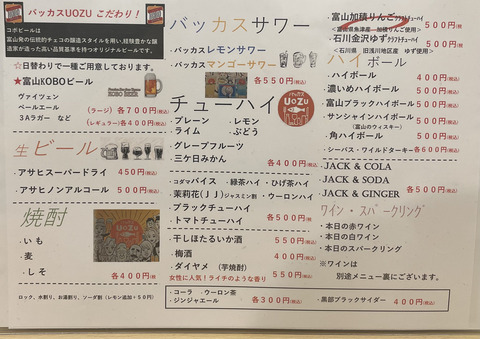 バッカスUOZU こだわり!
コボビールは
富山発の伝統的チェコの醸造スタイルを用い、経験豊かな醸
造家が造った高い品質基準を持つオリジナルビールです。
☆日替わりで一種ご用意しております。
★富山KOBOビール
KOBO BEER
ヴァイツェン
ペールエール
3Aラガー など
(ラージ) 各700円(税込)
(レギュラー) 各400円(税込)
生ビール
アサヒスーパードライ 450円(税込)
アサヒノンアルコール 500円(税込)
焼酎
UOZU
・いも
・麦
・しそ
各400円(税込)
ロック、水割り、お湯割り、ソーダ割(レモン追加+50円)
バッカスサワー
・バッカスレモンサワー
・バッカスマンゴーサワー
各550円(税込)
チューハイ
バッカス
UOZU
・プレーン ・レモン
・ライム ・ぶどう
・グレープフルーツ
・三ケ日みかん
各400円(税込)
・コダマバイス ・緑茶ハイ・ひげ茶ハイ
・茉莉花(JJ)ジャスミン割 ・ウーロンハイ
・ブラックチューハイ
・トマトチューハイ
各500円(税込)
・干しほたるいか酒 550円(税込)
・梅酒 400円(税込)
・ダイヤメ (芋焼酎)
女性に人気!ライチのような香り 550円(税込)
・コーラ ・ウーロン茶
・ジンジャエール
各300円(税込)
・富山加積りんごクラフトチューハイ 500円(税込)
<富山県魚津産 加積りんご使用>
・石川金沢ゆずクラフトチューハイ
<石川県 旧浅川地区産 ゆず使用> 500円(税込)
ハイボール
・ハイボール 400円(税込)
・濃いめハイボール 500円(税込)
・富山ブラックハイボール 500円(税込)
・サンシャインハイボール 500円(税込)
(富山のウィスキー)
・角ハイボール 500円(税込)
・シーバス・ワイルドターキー 各600円(税込)
JACK & COLA
JACK & SODA
JACK & GINGER
各500円(税込)
ワイン・スパークリング
・本日の赤ワイン
・本日の白ワイン
・本日のスパークリング
※ワインは
別途メニュー裏にございます。
・黒部ブラックサイダー 400円(税込)